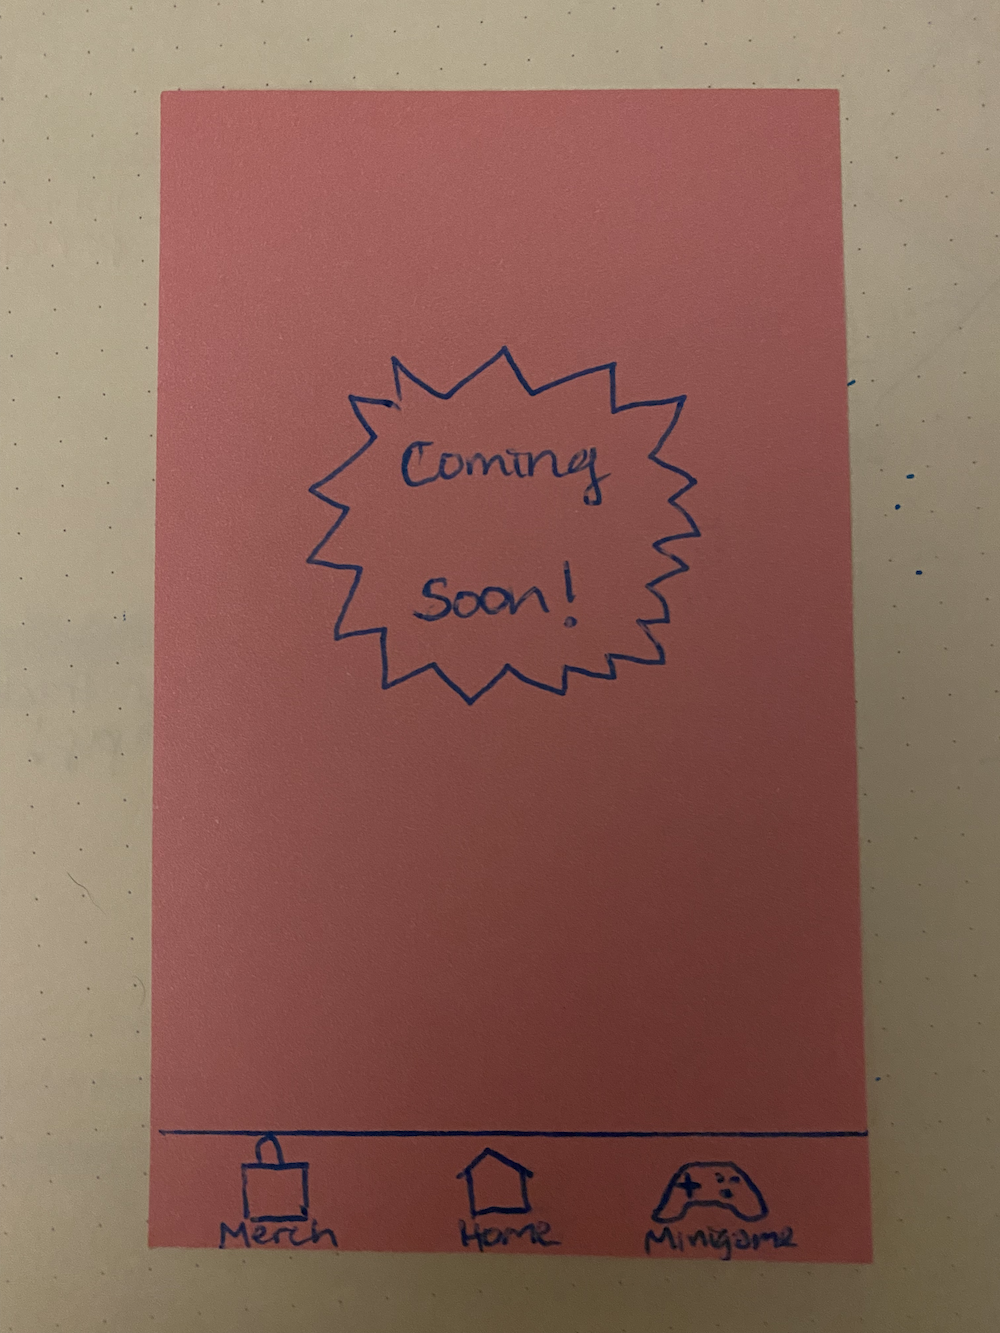 Coming
Soon!
Merch Home Minigame